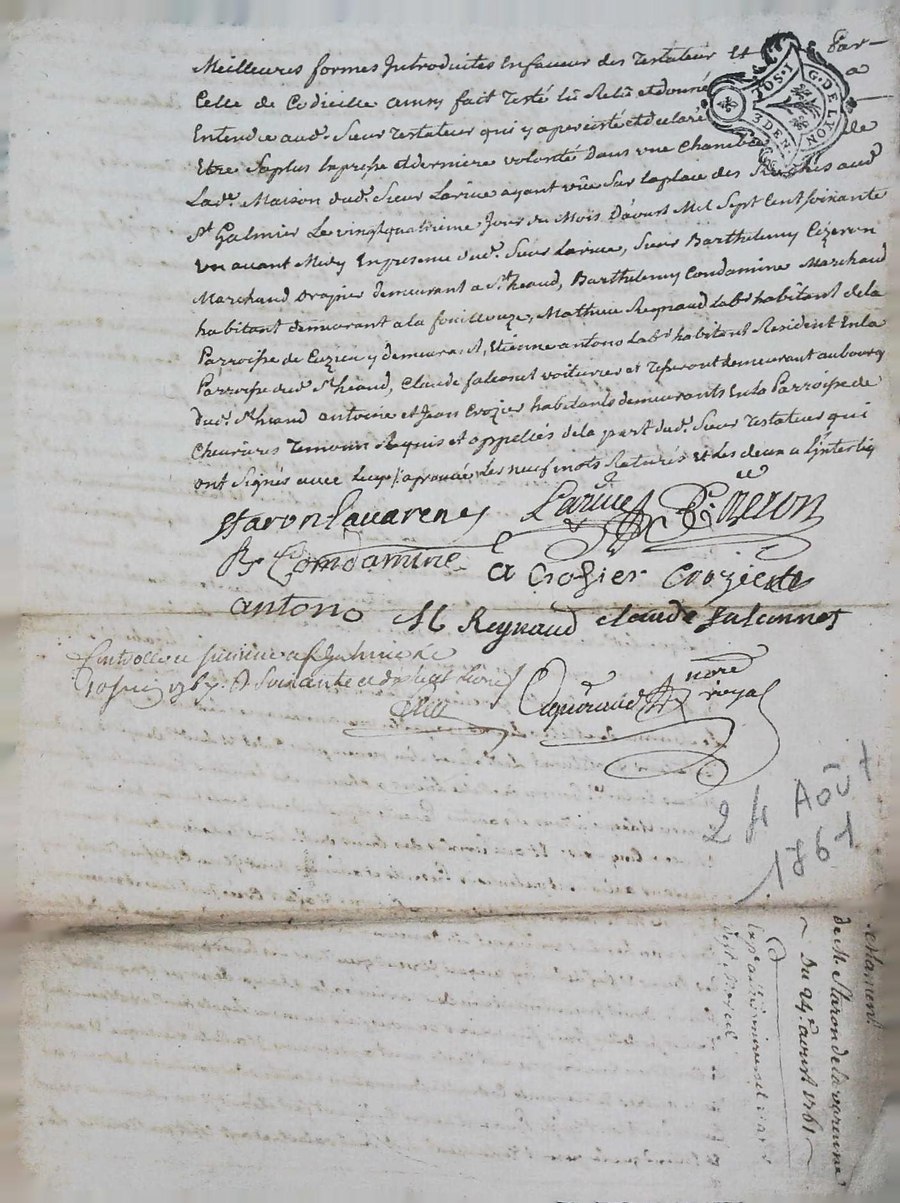 Meilleures formes Introduites Enfaveur des Testateur Et Par
Celle de Codicille ainsy fait Testé lû Relû et donné a
Entendre aud. Sieur Testateur qui y a persisté et declaré
Etre Saplus Expresse et derniere volonté Dans une Chambre de
Lad. Maison dud. Sieur Larüe ayant vûe Sur la place des aud.
St. Galmier Le vingtquatrieme Jour du Mois Daoust Mil Sept Cent soixante
un avant Midy En presence dud. Sieur Larüe, Sieur Barthelemy Cizeron
Marchand Drapier demeurant a St. heand, Barthelemy Condamine Marchand
habitant demeurant a la fouillouze, Mathieu Reynaud labr. habitant de la
Parroisse de Cuzieu y demeurant, Etienne antono labr. habitant Resident En la
Parroisse dud. St. heand, Claude falconet voiturier et demeurant au bourg
dud. St. heand antoine et Jean Crozier habitants demeurants En la Parroisse de
Chevrieres Temoins Requis et appellés de la part dud. Sieur Testateur qui
ont Signés avec Luy / aprouvée Les neuf mots Raturés Et Les deux a L'interlig
Staron Lavarenes Larüe B. Cizeron
B. Condamine A Crosier Crozier
antono M Reynaud claude falconnet
Controllé a St. Galmier Le
1767. Soixante livres
nore. royal
24 Août
1761
Testament
de M. Staron de la varenne
Du 24e. aoust 1761